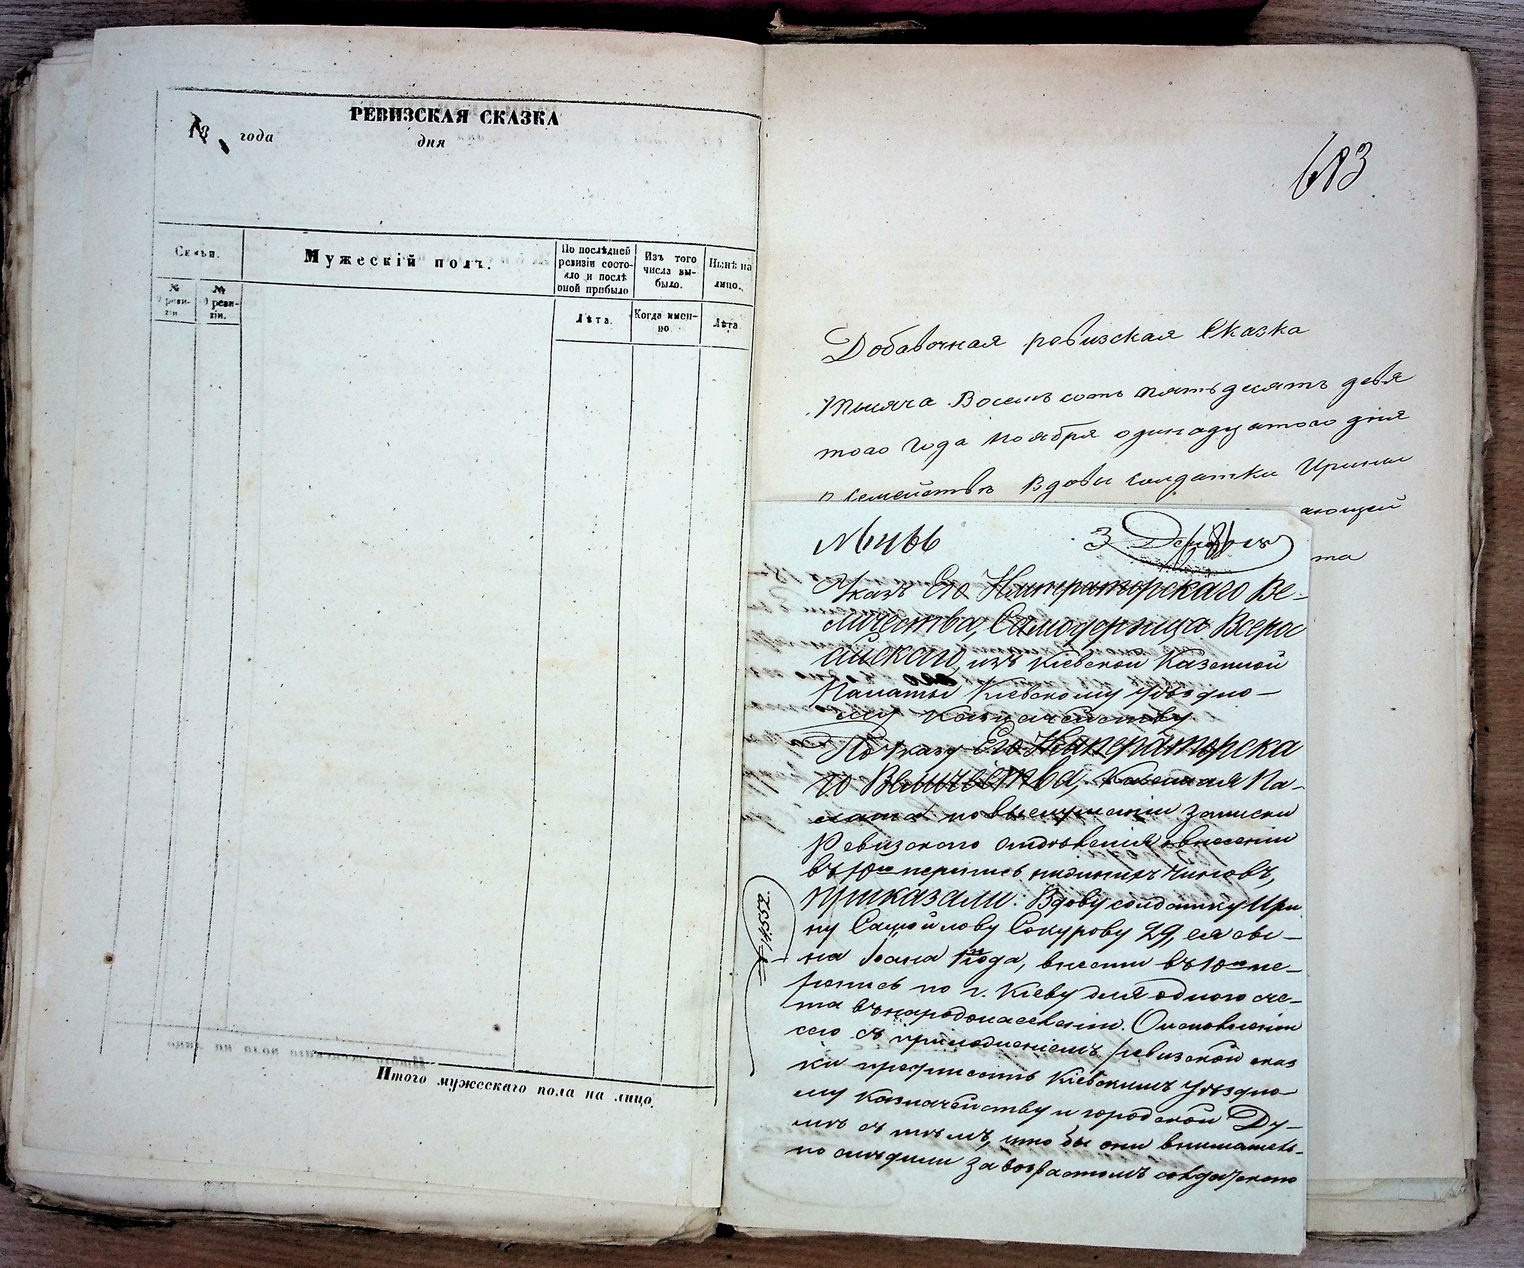 РЕВИЗСКАЯ СКАЗКА
18 года дня
Семьи.
Мужескій полъ.
По послѣдней ревизіи состояло и послѣ оной прибыло
Изъ того числа выбыло.
Нынѣ на лицо.
№ 9 ревизіи
№ 9 ревизіи.
Лѣта.
Когда именно
Лѣта
Итого мужескаго пола на лицо.
683
Добавочная ревизская Сказка
Тысяча Восемь сотъ пятьдесятъ девя
того Года Ноября одинадцатого дня
Семействѣ Вдовы солдатки Ирины
ающей
та
3 Декабря
Указъ Его Императорскаго Ве-
личества, Самодержца Всерос
сійскаго, изъ Кіевской Казенной
Палаты Кіевскому уѣздно-
му Казначейству
По Указу Его Императорска
го Величества, Казенная Па-
лата по выслушаніи записки
Ревизского отдѣленія о внесеніи
въ 10ю перепись нижнихъ чиновъ,
приказали: Вдову солдатку Ири
ну Самойлову Сокурову 29, ея сы-
на Іоана 1 года, внести въ 10ю пе-
репись по г. Кіеву для одного сче-
та въ народонаселеніи. О
сего съ приложеніемъ ревизской сказ
ки предписать Кіевскимъ Уѣздно-
му Казначейству и городской Ду-
мѣ съ тѣмъ, что бы они вниматель-
но слѣдили за возрастомъ солдатского